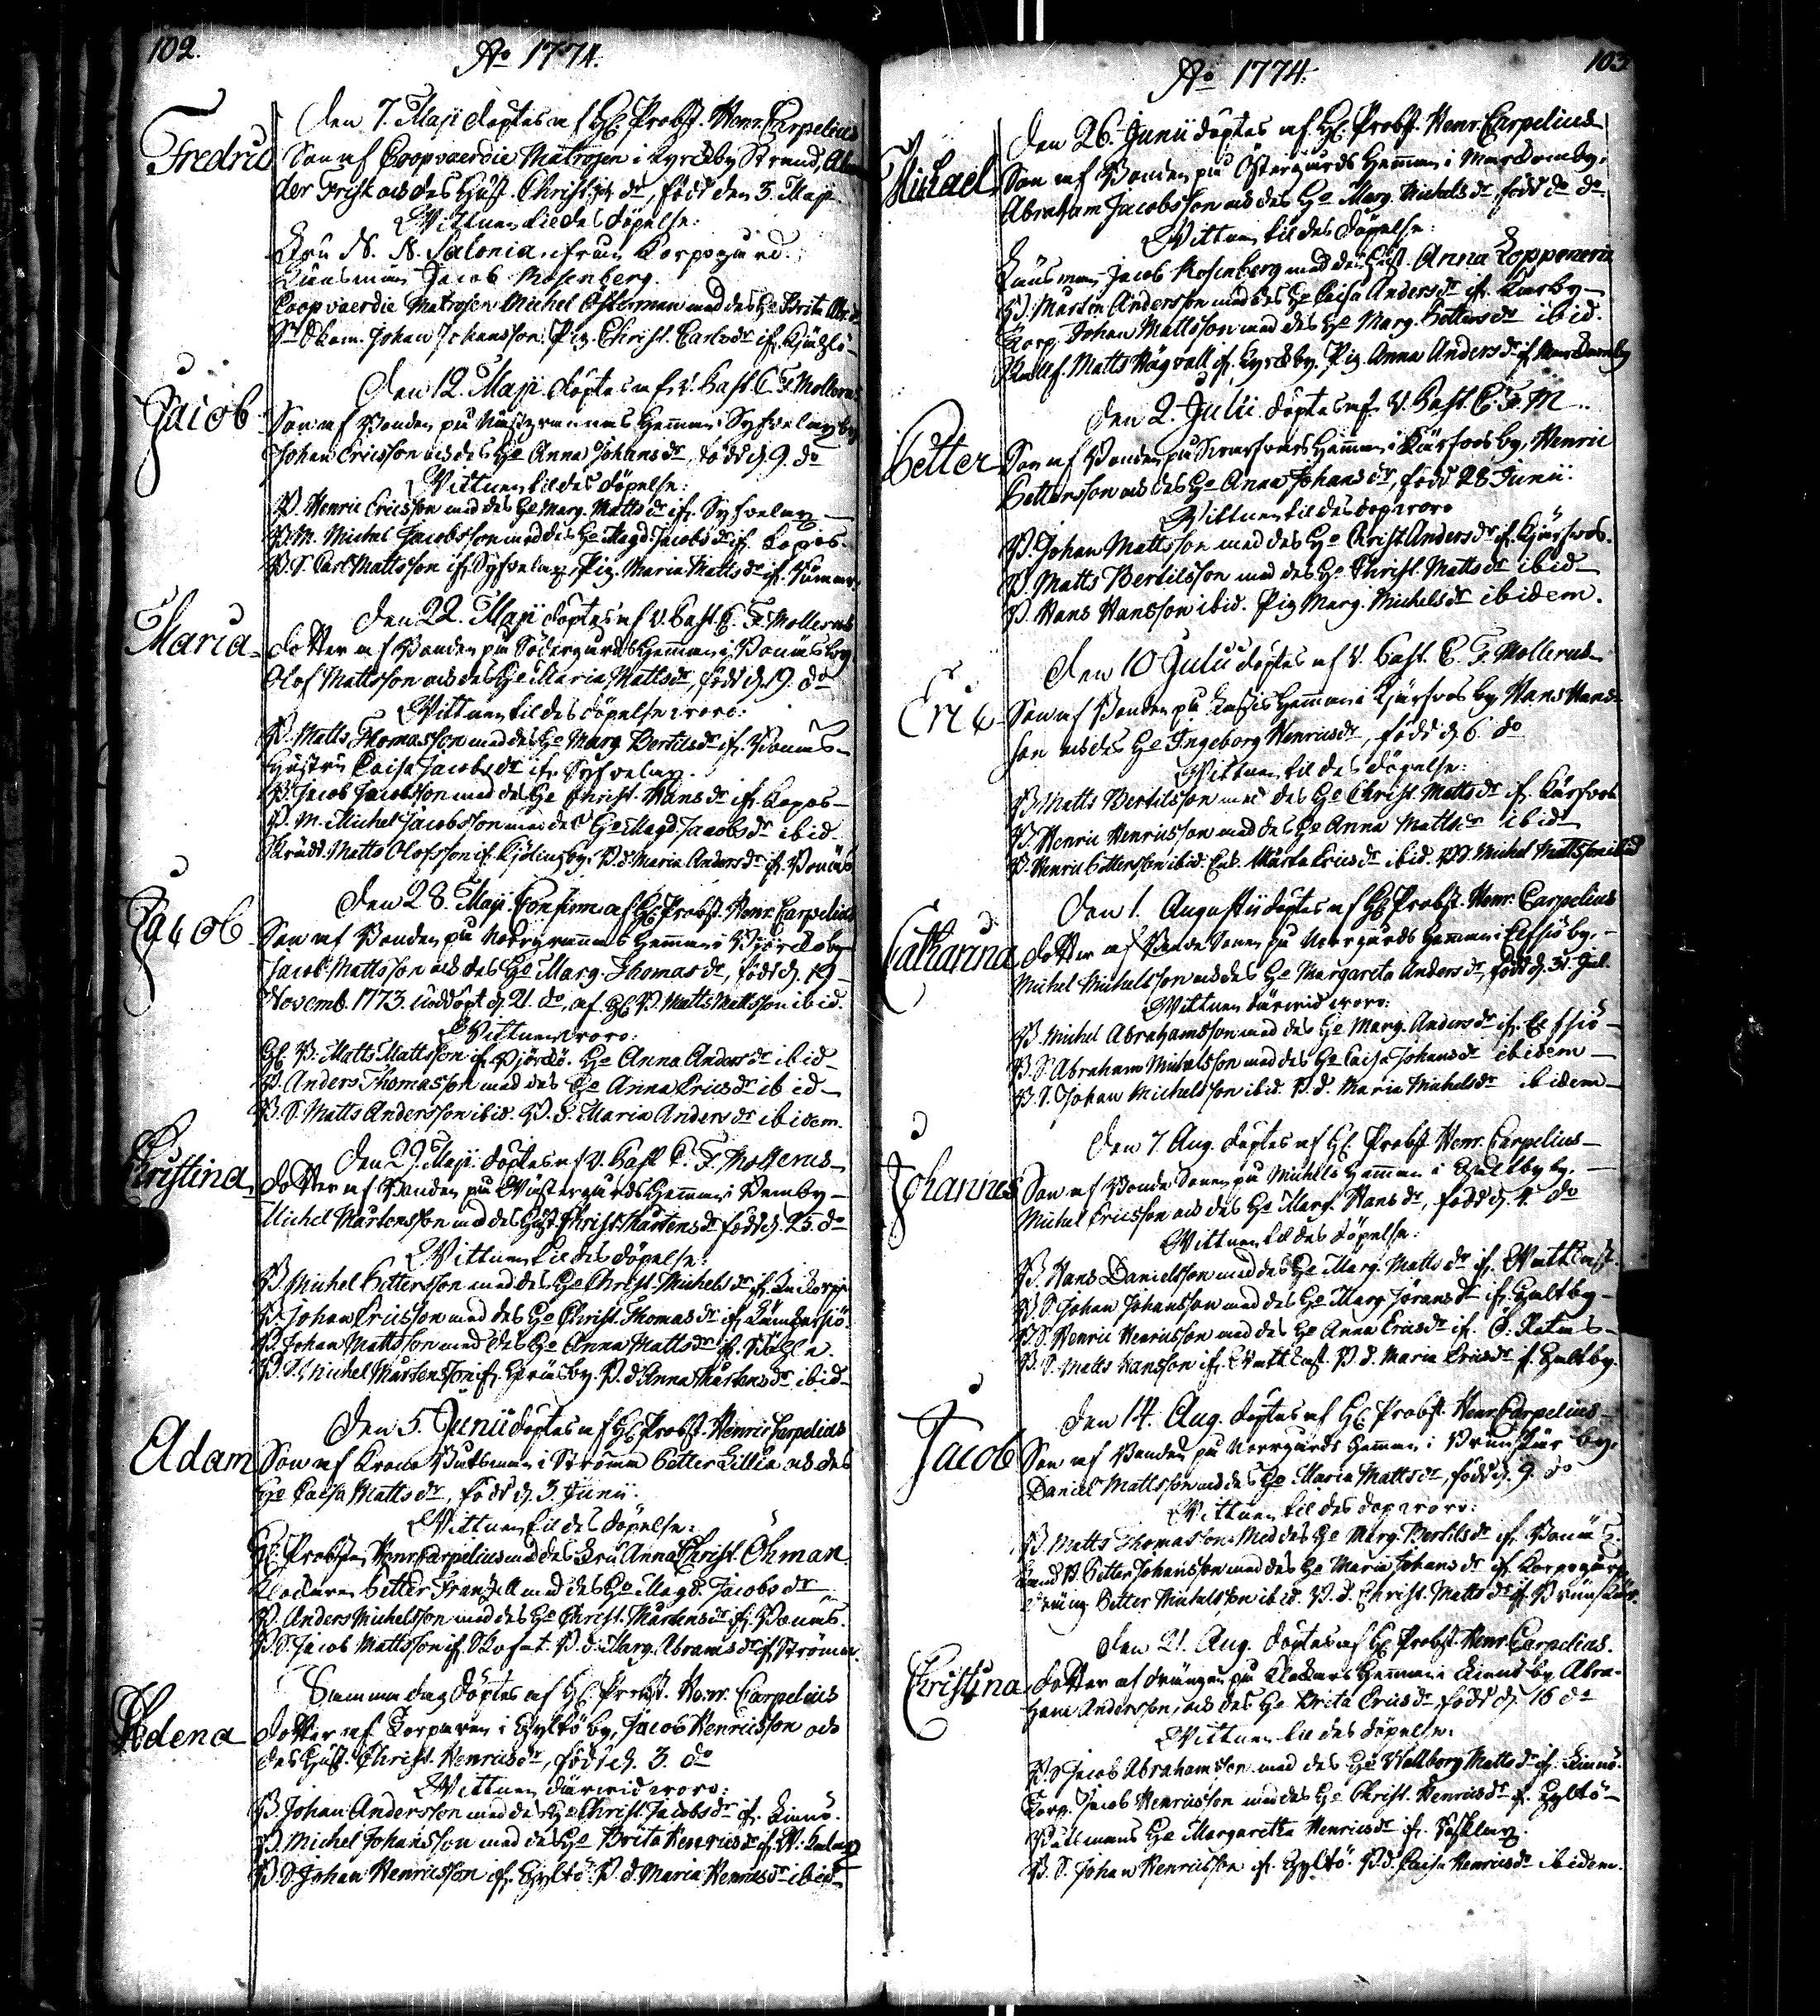 102.
Ao 1774.
Fredric
Den 7. Maji döptes af H: Probst. Henr. Carpelius
Son af Coopvaerdie Matrosen i Kyrckby Strand,
der Frisk ock des Hust. Christ: dr, född den 3. Maji.
Wittnen til des döpelse:
Fru N. N. Salonia ifrån Korpogård.
Länsman Jacob Rosenberg.
Coopvaerdie Matrosen Michel Österman med des He Brita
Johan Johansson. Pig. Christ. Carlsdr if.
Jacob
Den 12. Maji döptes af V. Past. C. F. Mollerus
Son af Bonden på Hemman i Syfvelaxby
Johan Ericsson ock des He Anna Johansdr, född d. 9. do
Wittnen til des döpelse:
B. Henric Ericsson med des He Marg. Mattsdr if. Syfvelax
B. M. Michel Jacobsson med des He Magd. Jacobsdr if. Kopos.
B. S. Carl Mattsson if. Syfvelax. Pig. Maria Mattsdr if.
Maria
Den 22. Maji döptes af V. Past. C. F. Mollerus
dotter af Bonden på Södergårds Hemman i Bonäs by
Olof Mattsson ock des He Maria Mattsdr, född d. 19. do
Wittnen til des döpelse voro:
B. Matts Thomasson med des He Marg Bertilsdr if. Bonäs
Hustru Caisa Jacobsdr if. Syfvelax.
B. Jacob Jacobsson med des He Christ. Hansdr if. Kopos
B. M. Michel Jacobsson med des He Magd. Jacobsdr ibid.
Matts Olofsson if. B. d. Maria Andersdr if. Bonäs
Jacob
Den 28. Maji Confirm. af H: Probst. Henr. Carpelius
Son af Bonden på Norrgrannas Hemman i Björckö by
Jacob Mattsson ock des He Marg. Thomasdr, född d. 19
Novemb. 1773. nöddöpt d. 21. do, af H: B. Matts Mattsson ibid.
Wittnen voro:
H: B. Matts Mattsson if. Björckö. He Anna Andersdr ibid
B. Anders Thomasson med des He Anna Ericsdr ibid
B. S. Matts Andersson ibid. B. d. Maria Andersdr ibidem.
Christina
Den 29. Maji döptes af V. Past C. F. Mollerus
dotter af Bonden på Wästergårds Hemman i Remby
Michel Mårtensson med des Hust. Christ. Mårtensdr född d. 25. do
Wittnen til des döpelse:
B. Michel Pettersson med des He Christ. Michelsdr if.
B. Johan Ericsson med des He Christ. Thomasdr if.
B. Johan Mattsson med des He Anna Mattsdr if.
B. S. Michel Mårtensson if. B. d. Anna Mårtensdr ibid
Adam
Den 5. Junii döptes af H: Probst. Henric Carpelius
Son af Krono Båtsman i Strömma Petter Lillia ock des
He Caisa Mattsdr, född d. 3. Junii.
Wittnen til des döpelse:
H: Probsten Henr. Carpelius med des Fru Anna Christ. Öhman
Klockaren Petter Franzell med des He Magd. Jacobsdr
B. Anders Michelsson med des He Christ. Mårtensdr if. Bonäs.
B. S. Jacob Mattsson if. B. d. Marg. Abramsdr if. Strömma.
Hedena
Samma dag döptes af H: Probst. Henr. Carpelius
dotter af Torparen i Gyltö by, Jacob Henricsson ock
des Hust. Christ. Henricsdr, född d. 3. do
Wittnen därvid voro:
B. Johan Andersson med des He Christ. Jacobsdr if. Limnö.
B. Michel Johansson med des He Brita Henricsdr if.
B. S. Johan Henricsson if. Gyltö. B. d. Maria Henricsdr ibid
103
Ao 1774.
Michael
Den 26. Junii döptes af H: Probst. Henr. Carpelius
Son af Bonden på Östergårds Hemman i Marckomby,
Abraham Jacobsson ock des He Marg. Michelsdr född do do
Wittnen til des döpelse:
Länsman Jacob Rosenberg med des Hust. Anna Kopponeria
B. Mårten Andersson med des He Caisa Andersdr if. Korsby
Korp. Johan Mattsson med des He Marg. Pettersdr ibid.
Matts Hägvall if. Kyrckby. Pig. Anna Andersdr if. Marckomby
Petter
Den 2. Julii döptes af V. Past. C. F. M.
Son af Bonden på Hemman i Kärfvos by, Henric
Pettersson ock des He Anna Johansdr, född 28 Junii.
Wittnen til des dop voro
B. Johan Mattsson med des He Christ Andersdr if. Kjärfvos.
B. Matts Bertilsson med des He Christ. Mattsdr ibid
B. Hans Hansson ibid. Pig Marg. Michelsdr ibidem.
Eric
Den 10 Julii döptes af V. Past. C. F. Mollerus
Son af Bonden på Hemman i Kjärfvos by Hans Hans-
son ock des He Ingeborg Henricsdr, född d. 6. do
Wittnen til des döpelse:
B. Matts Bertilsson med des He Christ. Mattsdr if. Kärfvos
B. Henric Henricsson med des He Anna Mattsdr ibid
B. Henric Pettersson ibid. Enk. Märta Ericsdr ibid. B. S. Michel Mattsson ibid
Catharina
Den 1. Augustii döptes af H: Probst. Henr. Carpelius
dotter af Bonde Sonen på Norrgårds Hemman i Elfsiö by.
Michel Michelsson ock des He Margareta Andersdr, född d. 31. Jul.
Wittnen därvid voro:
B. Michel Abrahamsson med des He Marg. Andersdr if. Elfsiö
B. S. Abraham Michelsson med des He Caisa Johansdr ibidem
B. S. Johan Michelsson ibid. B. d. Maria Michelsdr ibidem
Johannes
Den 7. Aug. döptes af H: Probst Henr. Carpelius
Son af Bonde Sonen på Michels Hemman i Galtby by.
Michel Ericsson ock des He Marg. Hansdr, född d. 4. do
Wittnen til des döpelse:
B. Hans Danielsson med des He Marg. Mattsdr if. Wattkast.
B. S. Johan Johansson med des He Marg Jöransdr if. Galtby
B. S. Henric Henricsson med des He Anna Ericsdr if. Ö. Retais
B. S. Matts Hansson if. Wattkast. B. d. Maria Ericsdr if. Galtby.
Jacob
Den 14. Aug. döptes af H: Probst. Henr. Carpelius
Son af Bonden på Norrgårds Hemman i Brunskär by.
Daniel Mattsson ock des He Maria Mattsdr, född d. 9. do
Wittnen til des dop voro:
B Matts Thomasson med des He Marg. Bertilsdr if. Bonäs.
B. Petter Johansson med des He Maria Johansdr if. Korpogård
dräng Petter Michelsson ibid. B. d. Christ. Mattsdr if. Brunskär.
Christina
Den 21. Aug. döptes af H: Probst. Henr. Carpelius.
dotter af drängen på Klockars Hemman i Limnö by Abra-
ham Andersson, ock des He Brita Ericsdr född d. 16 do
Wittnen til des döpelse:
B. S. Jacob Abrahamsson med des He Wallborg Mattsdr if. Limnö.
Torp. Jacob Henricsson med des He Christ. Henricsdr if. Gyltö
Båtsmans He Margaretha Henricsdr if.
B. S. Johan Henricsson if. Gyltö. B. d. Caisa Henricsdr ibidem.